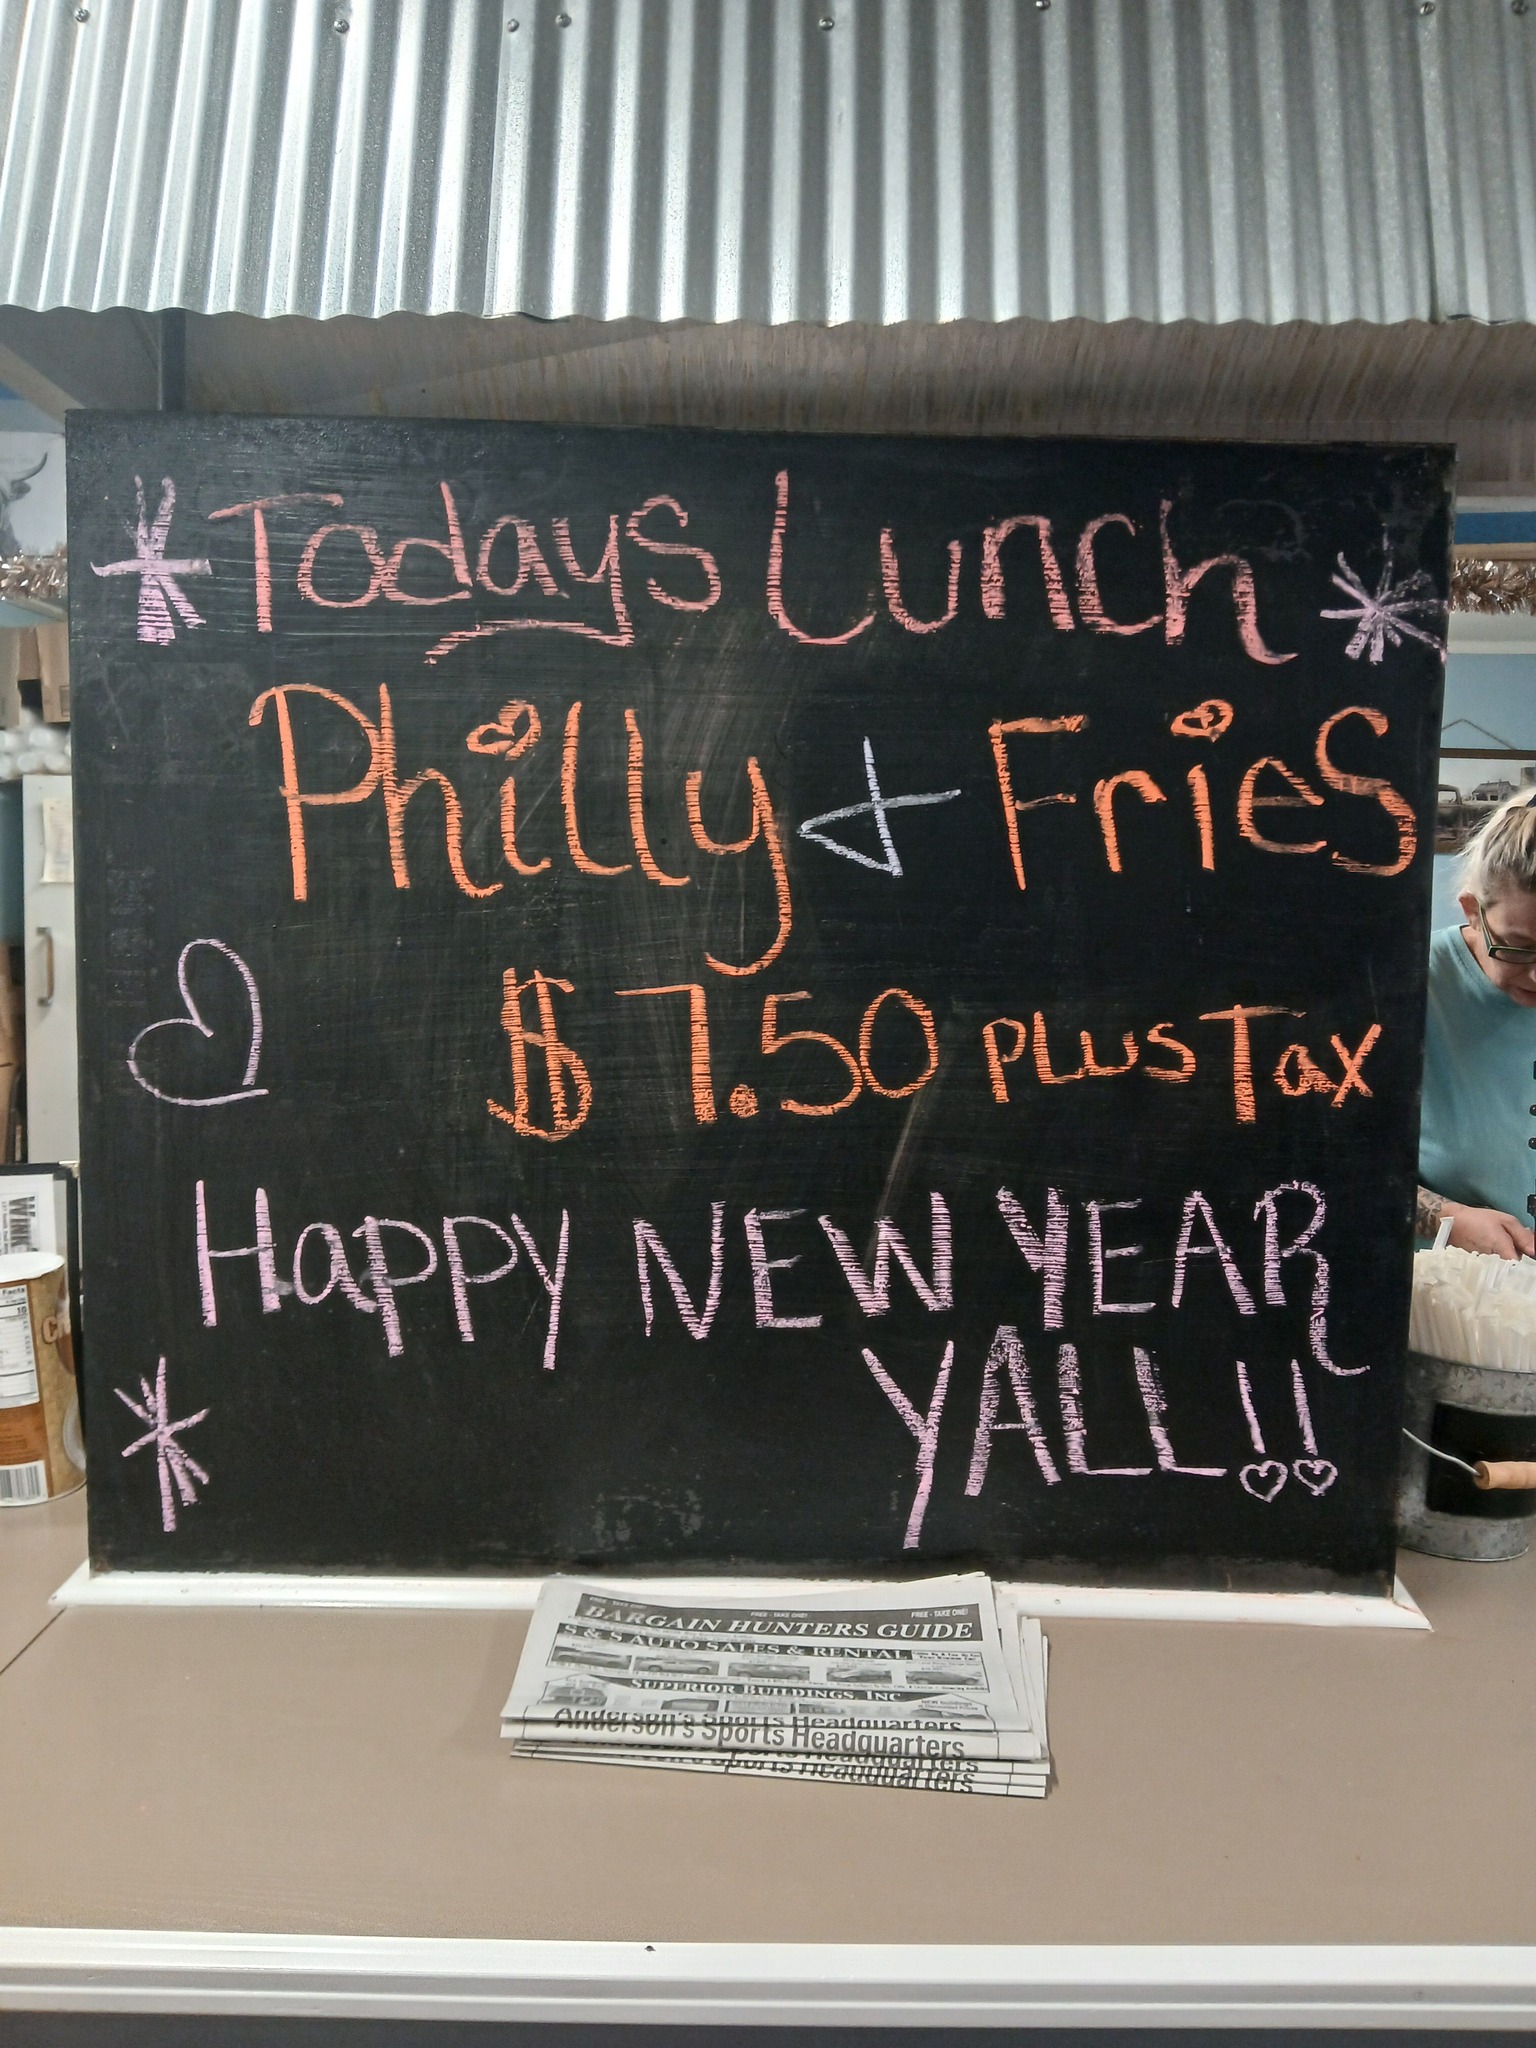 Todays Lunch
Philly + Fries
$7.50 plus Tax
Happy NEW YEAR
YALL!!
Facts
FREE - TAKE ONE! FREE - TAKE ONE! FREE - TAKE ONE!
BARGAIN HUNTERS GUIDE
S & S AUTO SALES & RENTAL
SUPERIOR BUILDINGS, INC
Anderson's Sports Headquarters
Anderson's Sports Headquarters
Sports Headquarters
Headquarters